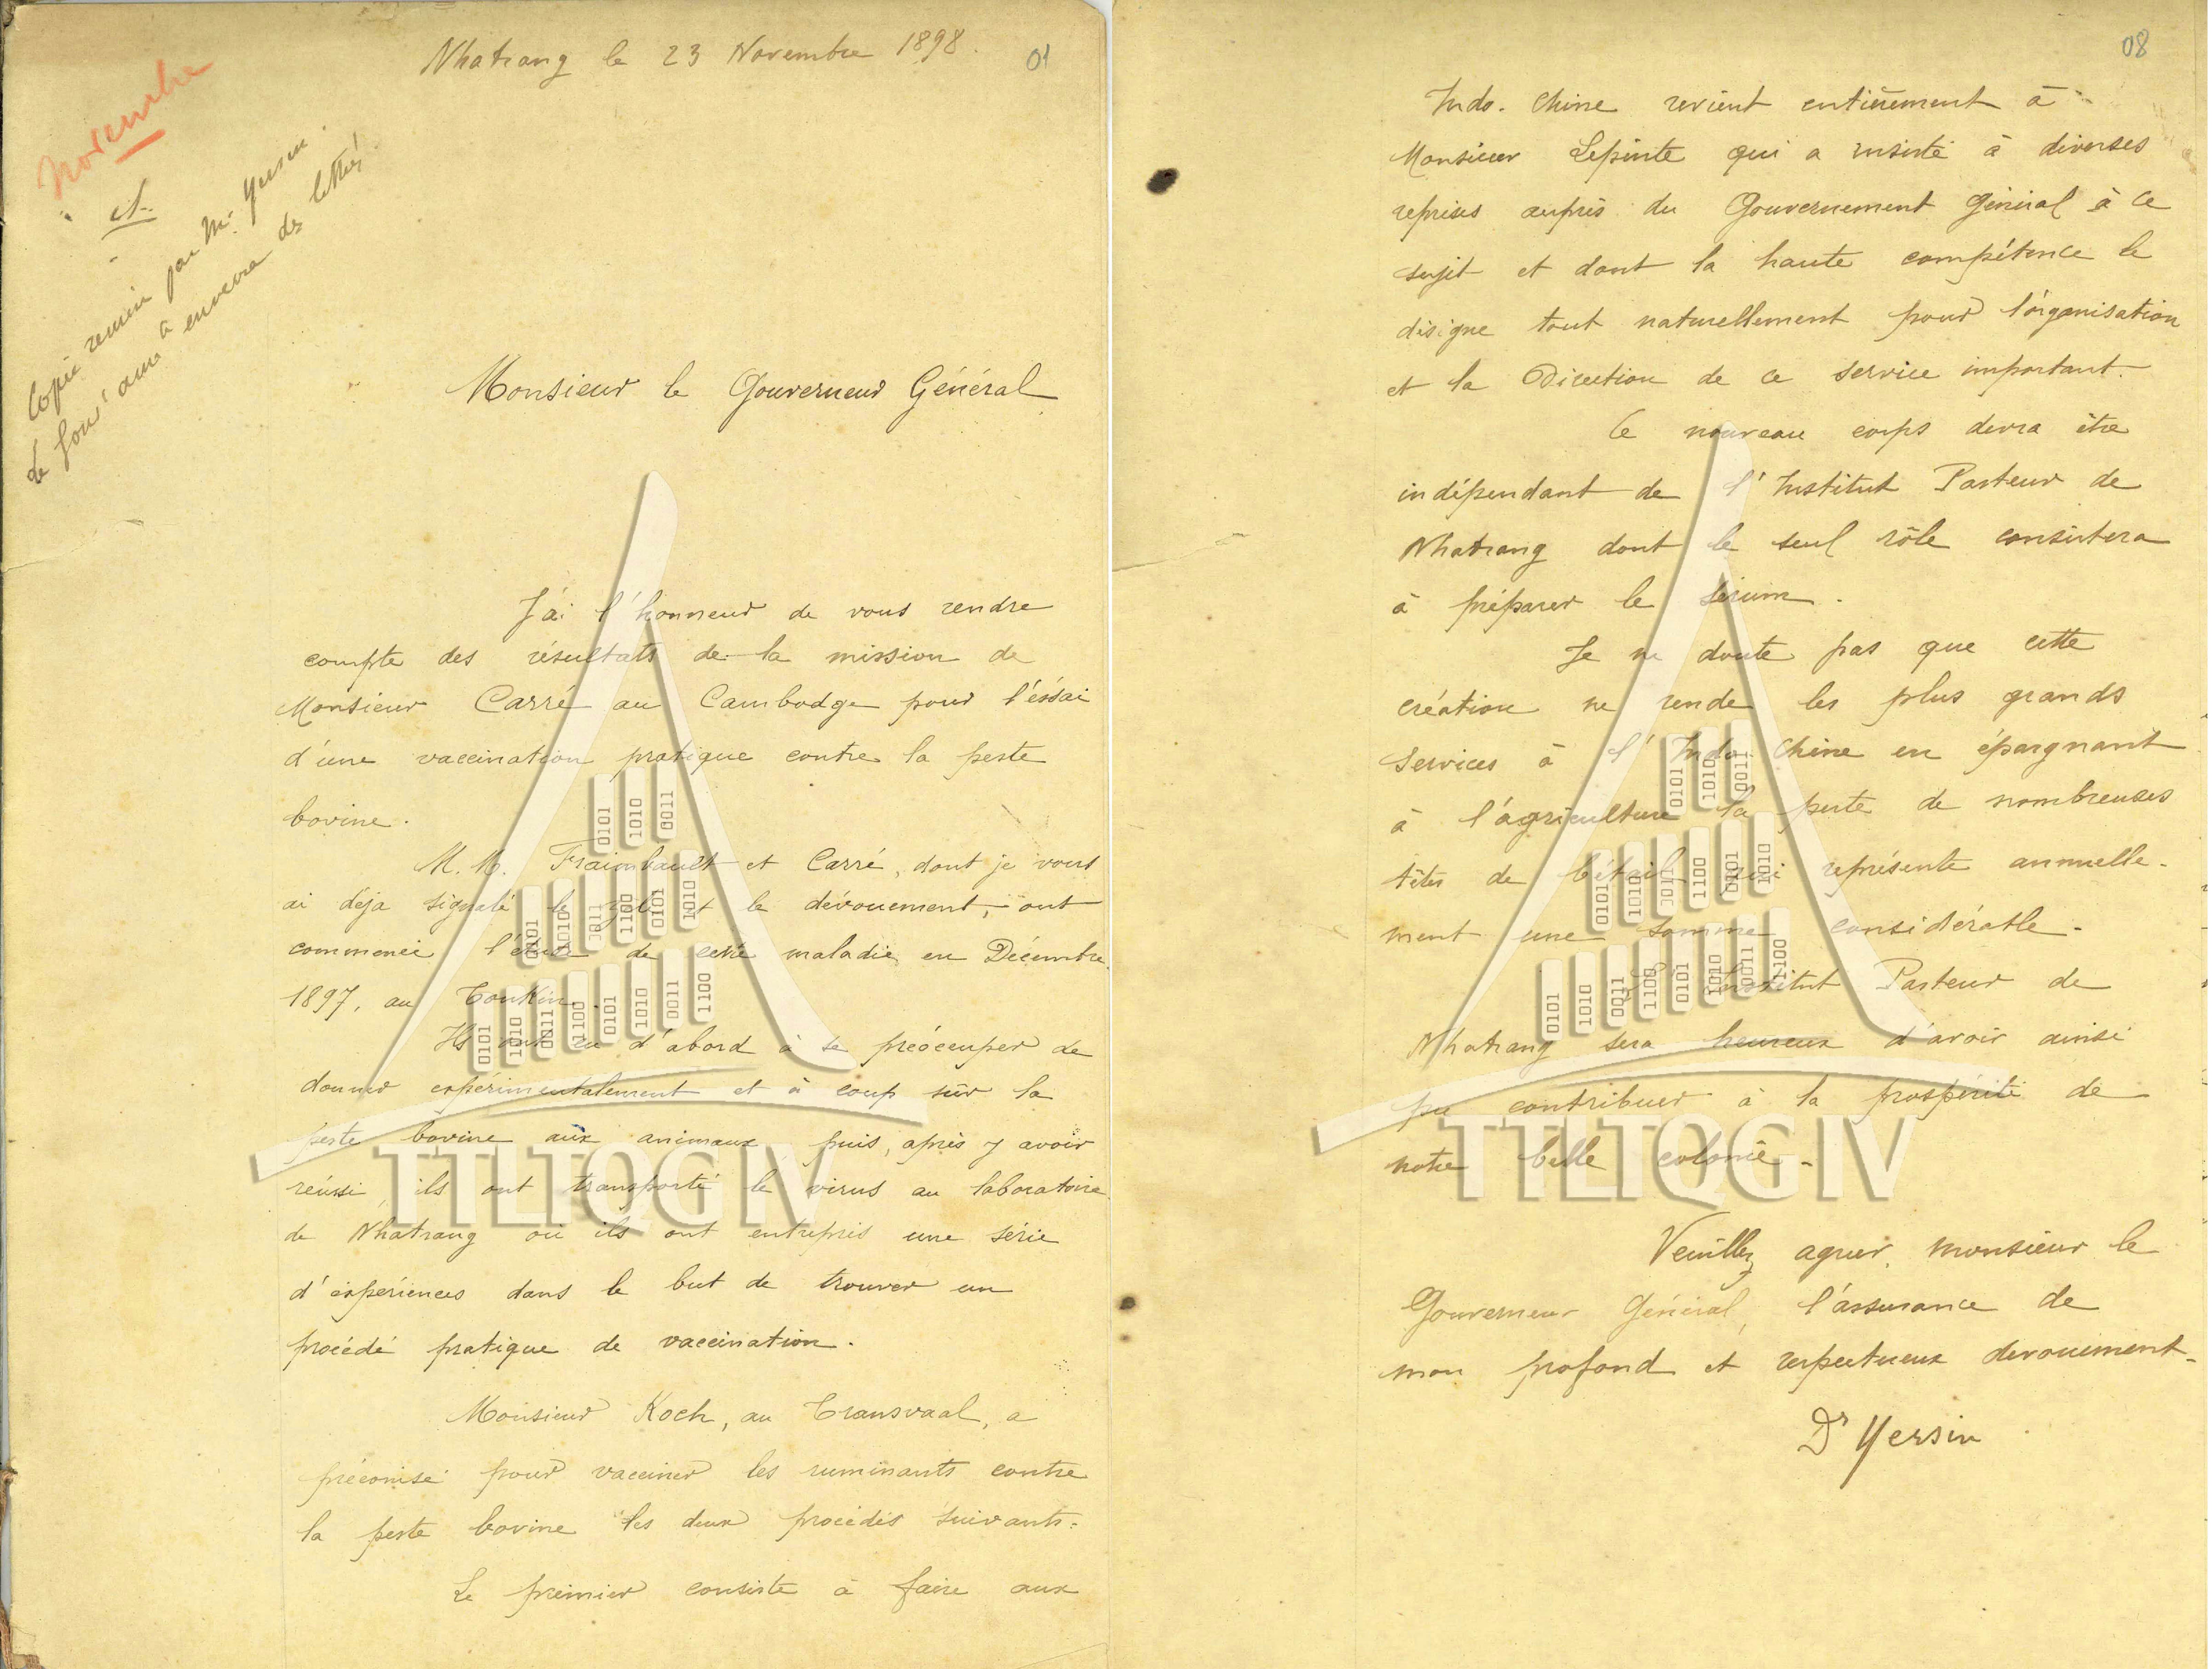 Nhatrang le 23 Novembre 1898.
01
Novembre
Copie remise par Mr. Yersin
Le Gouv' aura à enverra des lettres
Monsieur le Gouverneur Général
J'ai l'honneur de vous rendre
compte des résultats de la mission de
Monsieur Carré au Cambodge pour l'éssai
d'une vaccination pratique contre la peste
bovine.
M. M. Fraimbault et Carré, dont je vous
ai déja signalé le zèle et le dévouement, ont
commencé l'étude de cette maladie en Décembre
1897, au Tonkin.
Ils ont eu d'abord à se préoccuper de
donner expérimentalement et à coup sûr la
peste bovine aux animaux puis, après y avoir
réussi, ils ont transporté le virus au laboratoire
de Nhatrang où ils ont entrepris une série
d'expériences dans le but de trouver un
procédé pratique de vaccination.
Monsieur Koch, au Transvaal, a
préconisé pour vacciner les ruminants contre
la peste bovine les deux procédés suivants:
Le premier consiste à faire aux
TTLTQG IV
08
Indo-Chine revient entièrement à
Monsieur Lepinte qui a insisté à diverses
reprises auprès du Gouvernement Général à ce
sujet et dont la haute compétence le
désigne tout naturellement pour l'organisation
et la Direction de ce service important.
Ce nouveau corps devra être
indépendant de l'Institut Pasteur de
Nhatrang dont le seul rôle consistera
à préparer le sérum.
Je ne doute pas que cette
création ne rende les plus grands
services à l'Indo-Chine en épargnant
à l'agriculture la perte de nombreuses
têtes de bétail qui représente annuelle-
ment une somme considérable.
L'Institut Pasteur de
Nhatrang sera heureux d'avoir ainsi
pu contribuer à la prospérité de
notre belle colonie.
Veuillez agréer, monsieur le
Gouverneur Général, l'assurance de
mon profond et respectueux dévouement.
Dr Yersin
TTLTQG IV